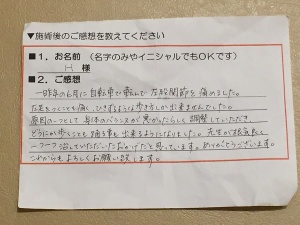 ▼施術後のご感想を教えてください
■１．お名前（名字のみやイニシャルでもOKです）
H 様
■２．ご感想
一昨年の6月に自転車で転んで左股関節を痛めました。
左足をつくことも痛く、ひきずるような歩き方しか出来ませんでした。
原因の一つとして身体のバランスが悪かったらしく調整していただき
どうにか歩くことも踏む事も出来るようになりました。先生が根気良く
一つ一つ治していただいたおかげだと思っています。ありがとうございます。
これからもよろしくお願い致します。